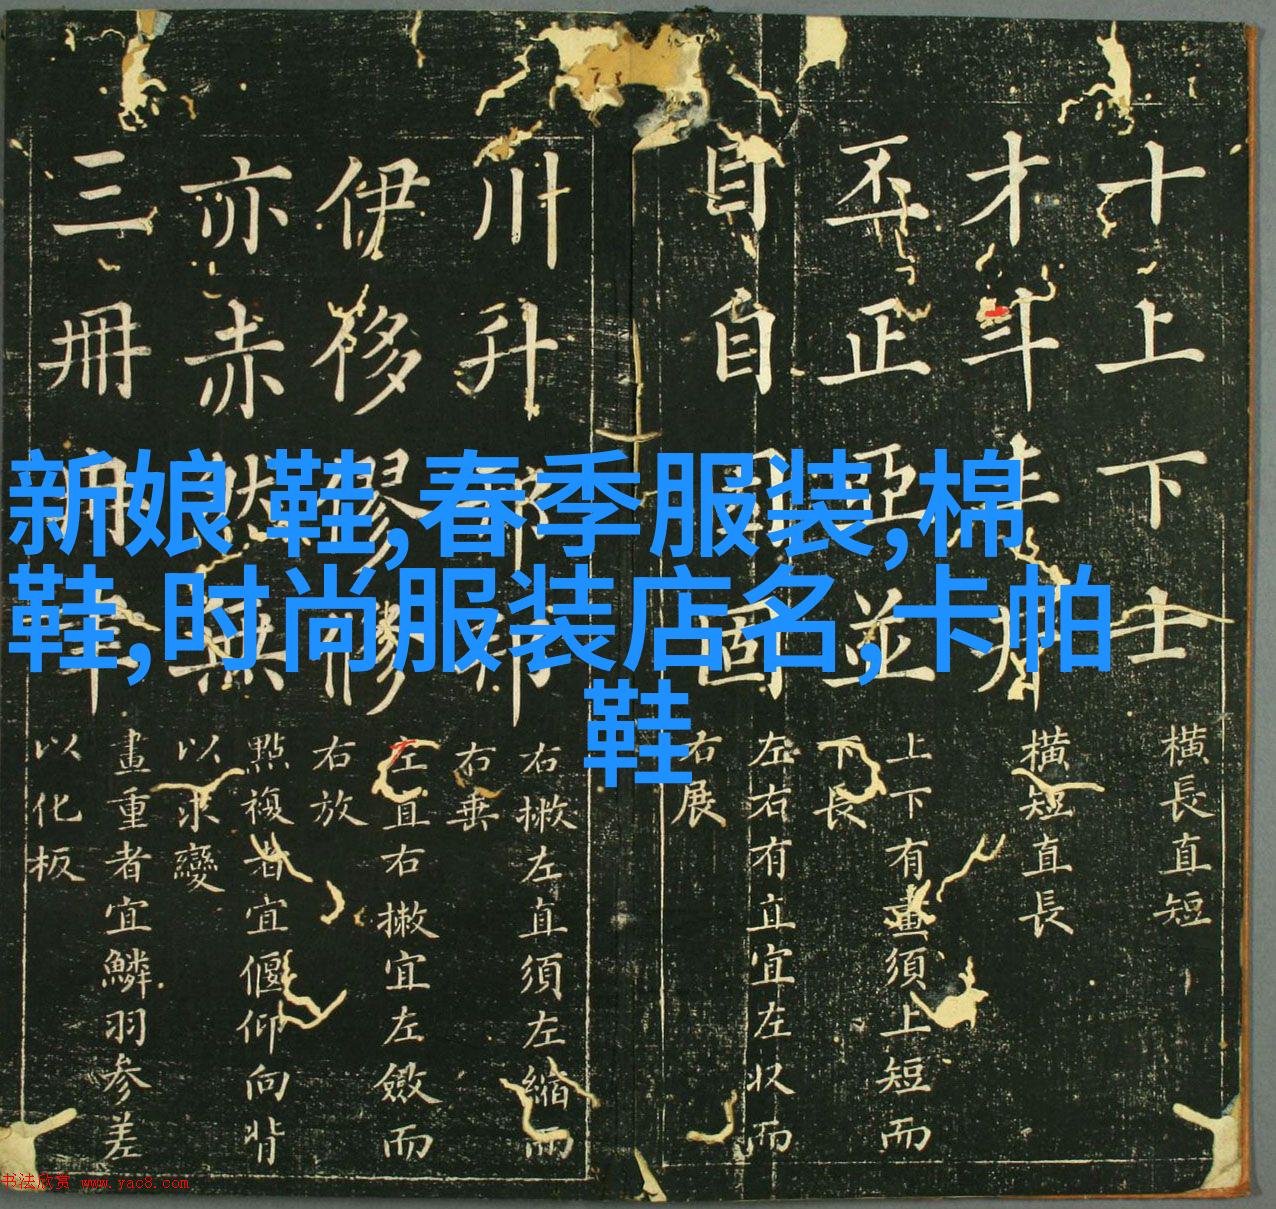 新娘 鞋,春季服装,棉
鞋,时尚服装店名,卡帕
鞋
十上下士
橫長直短
才斗丰
橫短直長
丕正亞並
上下有畫須上短而
下長
目自固
左右有直宜左收而
右展
川升
右撇左直須左縮而
右垂
伊侈
左直右撇宜左斂而
右放
亦赤然無
點複者宜偃仰向背
以求變
三冊
畫重者宜鱗羽參差
以化板
书法欣赏 www.yac8.com